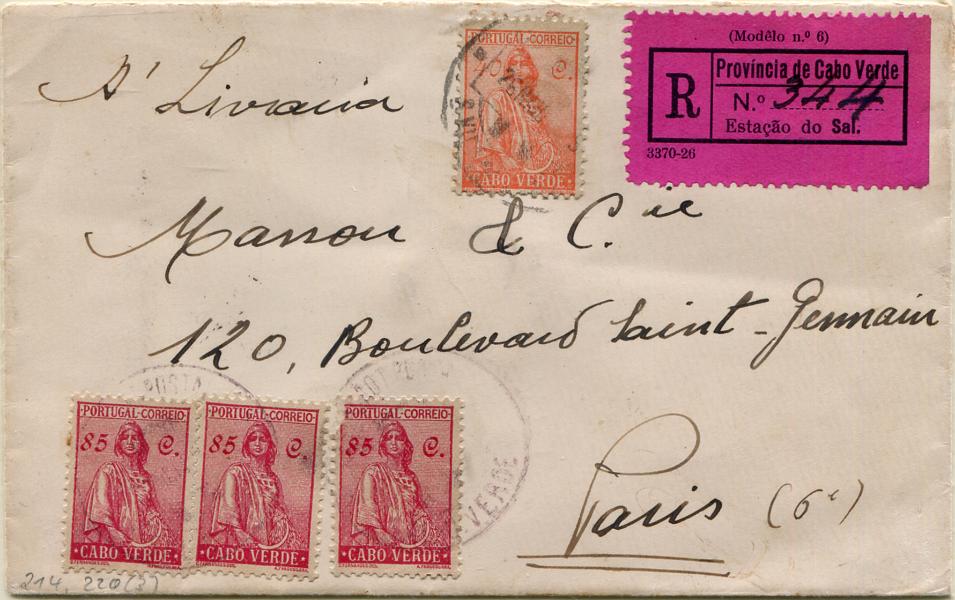 PORTUGAL-CORREIO
10 C.
CABO VERDE
(Modêlo n.º 6)
R
Província de Cabo Verde
N.º 344
Estação do Sal.
3370-26
A' Livraria
Masson & C.ie
120, Boulevard Saint-Germain
Paris (6e)
PORTUGAL-CORREIO
85 C.
CABO VERDE
PORTUGAL-CORREIO
85 C.
CABO VERDE
PORTUGAL-CORREIO
85 C.
CABO VERDE
VERDE
214, 220(3)